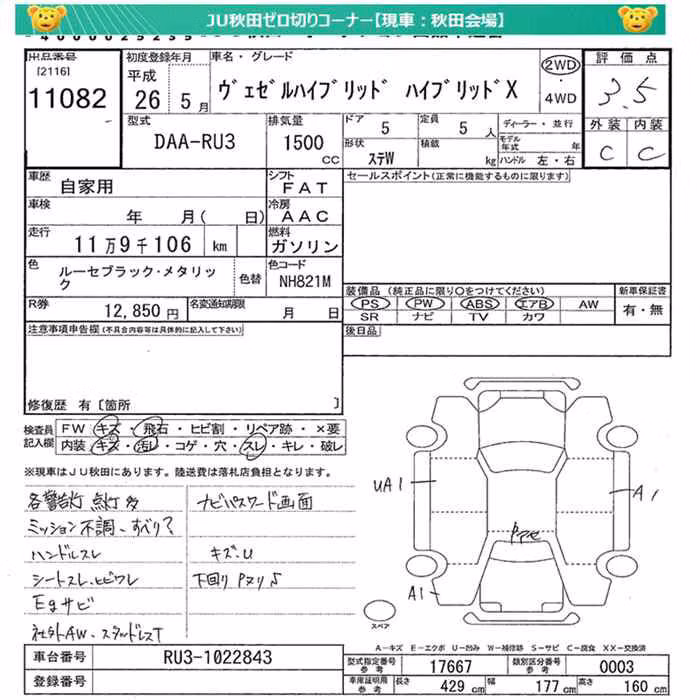 JU秋田ゼロ切りコーナー【現車：秋田会場】
出品番号 初度登録年月 車名・グレード 評価点
[2116] 11082
平成 26 5月 ヴェゼルハイブリッド ハイブリッドX 2WD ・4WD 3.5
型式 DAA-RU3 排気量 1500 CC
ドア 5 定員 5 人 ディーラー・並行 外装 内装
形状 ステW 積載 kg モデル年式 年 C C
ハンドル 左・右
車歴 自家用 シフト FAT セールスポイント(正常に機能するものに限ります)
車検 年 月( 日) 冷房 AAC
走行 11万9千106 km 燃料 ガソリン
色 ルーセブラック・メタリック 色替 色コード NH821M
装備品(純正品に限り○をつけてください) 新車保証書
PS PW ABS エアB AW 有・無
SR ナビ TV カワ
R券 12,850円 名変通知期限 月 日
後日品
注意事項申告欄(不具合内容等は具体的に記入して下さい)
修復歴 有〔箇所 〕
検査員記入欄 FW キズ・飛石・ヒビ割・リペア跡・×要
内装 キズ・汚レ・コゲ・穴・スレ・キレ・破レ
※現車はJU秋田にあります。陸送費は落札店負担となります。
各警告灯 点灯多 ナビパスワード画面
ミッション不調、すべり?
ハンドルスレ キズ・U
シートスレ・ヒビワレ 下回りPヌリS
Egサビ
社外AW・スタッドレスT
UA1
A1
Pアセ
A1
スペア
A−キズ E−エクボ U−凹み W−補修跡 S−サビ C−腐食 XX−交換済
車台番号 RU3-1022843
登録番号
型式指定番号 参考 17667 類別区分番号 参考 0003
車庫証明用 参考 長さ 429 cm 幅 177 cm 高さ 160 cm